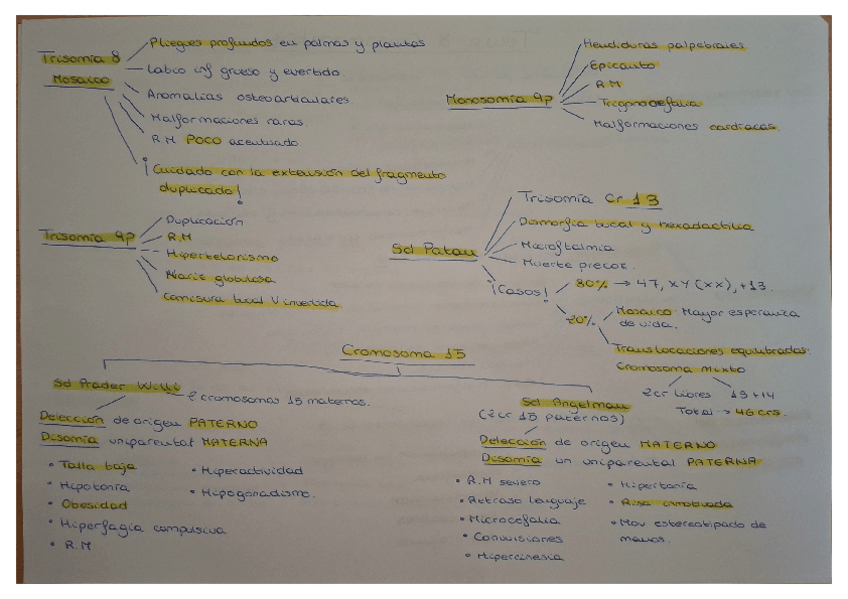 Trisomía 8
Mosaico
Pliegues profundos en palmas y plantas
Labio inf grueso y evertido.
Anomalías osteoarticulares.
Malformaciones raras
R.M POCO acentuado.
¡Cuidado con la extensión del fragmento
duplicado!
Monosomía 9p
Hendiduras palpebrales
Epicanto
R.M
Trigonocefalia
Malformaciones cardíacas.
Trisomía 9p
Duplicación
R.M
Hipertelorismo
Nariz globulosa
Comisura bucal V invertida
Sd Patau
Trisomía Cr 13
Dismorfia bucal y hexadactilia
Microftalmia
Muerte precoz.
¡Casos!
80% → 47, XY (XX), +13.
20%
Mosaico: Mayor esperanza
de vida.
Translocaciones equilibradas:
Cromosoma Mixto
2cr libres
13+14
Total → 46 crs.
Cromosoma 15
Sd Prader Willi
2 cromosomas 15 maternos.
Delección de origen PATERNO
Disomía uniparental MATERNA
• Talla baja
• Hipotonía
• Obesidad
• Hiperfagia compulsiva
• R.M
• Hiperactividad
• Hipogonadismo.
Sd Angelman
(2 cr 15 paternos)
Delección de origen MATERNO
Disomía un uniparental PATERNA
• R.M severo
• Retraso lenguaje
• Microcefalia
• Convulsiones
• Hipercinesia
• Hipertonía
• Risa inmotivada
• Mov estereotipado de
manos.